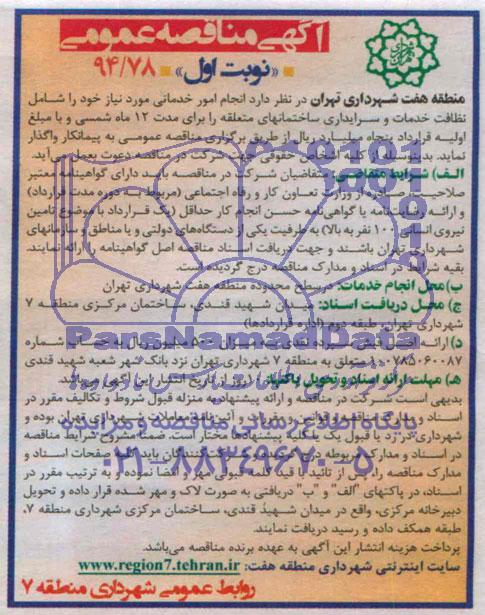 آگهی مناقصه عمومی
«نوبت اول» ۹۴/۷۸
منطقه هفت شهرداری تهران در نظر دارد انجام امور خدماتی مورد نیاز خود را شامل
نظافت خدمات و سرایداری ساختمانهای متعلقه را برای مدت ۱۲ ماه شمسی و با مبلغ
اولیه قرارداد پنجاه میلیارد ریال از طریق برگزاری مناقصه عمومی به پیمانکار واگذار
نماید. بدینوسیله از کلیه اشخاص حقوقی جهت شرکت در مناقصه دعوت بعمل می‌آید.
الف) شرایط متقاضی: متقاضیان شرکت در مناقصه باید دارای گواهینامه معتبر
صلاحیت صادره از وزارت تعاون کار و رفاه اجتماعی (مربوط به دوره مدت قرارداد)
و ارائه رضایت‌نامه یا گواهی‌نامه حسن انجام کار حداقل (یک قرارداد با موضوع تامین
نیروی انسانی ۱۰۰ نفر به بالا) به ظرفیت یکی از دستگاه‌های دولتی و یا مناطق و سازمانهای
شهرداری تهران باشند و جهت دریافت اسناد مناقصه اصل گواهینامه را ارائه نمایند.
بقیه شرایط در اسناد و مدارک مناقصه درج گردیده است.
ب) محل انجام خدمات: در سطح محدوده منطقه هفت شهرداری تهران
ج) محل دریافت اسناد: میدان شهید قندی، ساختمان مرکزی منطقه ۷
شهرداری تهران، طبقه دوم (اداره قراردادها)
د) ارائه سپرده نقدی به میزان ۵۰۰ میلیون ریال به حساب شماره
۱۰۰۷۸۵۰۶۰۰۸۷ متعلق به منطقه ۷ شهرداری تهران نزد بانک شهر شعبه شهید قندی
هـ) مهلت ارائه اسناد و تحویل پاکتها: روز از تاریخ انتشار این آگهی می‌باشد.
بدیهی است شرکت در مناقصه و ارائه پیشنهاد به منزله قبول شروط و تکالیف مقرر در
اسناد و مدارک مناقصه و قوانین و مقررات و آئین‌نامه معاملات شهرداری تهران بوده و
شهرداری در رد یا قبول یک یا کلیه پیشنهادها مختار است. ضمنا مشروح شرایط مناقصه
در اسناد و مدارک مربوطه کنندگان باید صفحات اسناد و
مدارک مناقصه را پس از تائید با قید کلمه قبولی مهر و امضا نموده و به ترتیب مقرر در
اسناد، در پاکتهای "الف" و "ب" دریافتی به صورت لاک و مهر شده قرار داده و تحویل
دبیرخانه مرکزی، واقع در میدان شهید قندی، ساختمان مرکزی شهرداری منطقه ۷،
طبقه همکف داده و رسید دریافت نمایند.
پرداخت هزینه انتشار این آگهی به عهده برنده مناقصه می‌باشد.
سایت اینترنتی شهرداری منطقه هفت: www.region7.tehran.ir
روابط عمومی شهرداری منطقه ۷
ParsNamadData
پایگاه اطلاع رسانی مناقصه و مزایده
۰۲۱-۸۸۳۴۹۶۷۰-۵